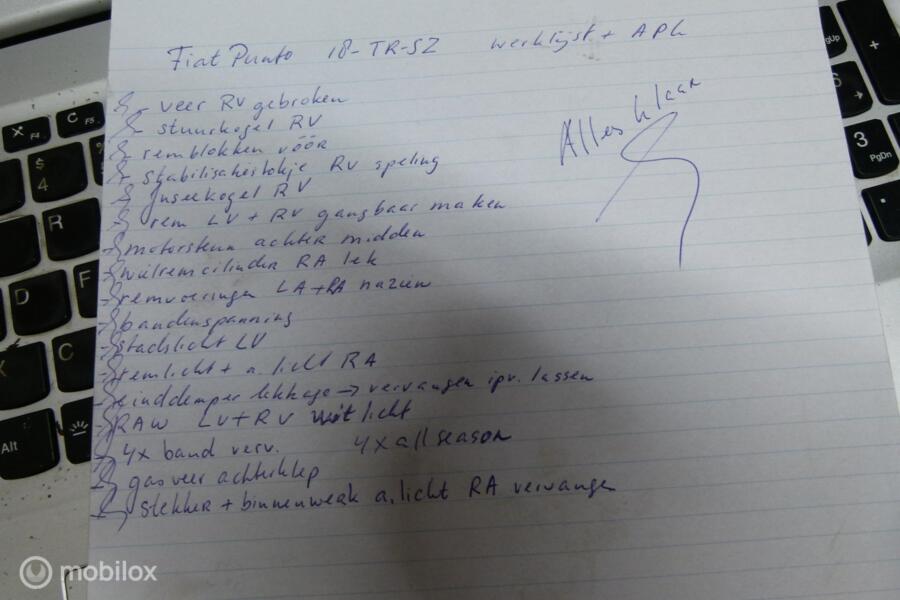 Fiat Punto 18-TR-SZ werklijst + APK
Alles klaar
- veer RV gebroken
stuurkogel RV
remblokken vóór
stabilisatiestokje RV speling
fuseekogel RV
rem LV + RV gangbaar maken
motorsteun achter midden
wielremcilinder RA lek
remvoeringen LA + RA nazien
bandenspanning
stadslicht LV
remlicht + a. licht RA
einddemper lekkage → vervangen ipv. lassen
RAW LV + RV wit licht
4x band verv. 4x all season
gasveer achterklep
stekker + binnenwerk a. licht RA vervangen
X F4
C F5
$ 4
R
D
F
C
X
Alt
PgUp
3 PgDn
+
mobilox